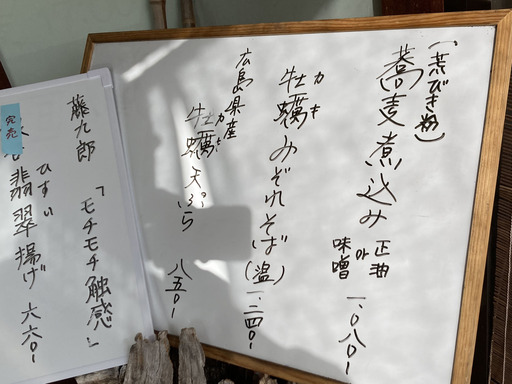 （荒びき粉）
蕎麦煮込み
正油
or
味噌
一、〇八〇ー
カキ
牡蠣みぞれそば（温）
一、二四〇ー
広島県産
カキ
牡蠣天ぷら 八五〇ー
藤九郎 「モチモチ触感」
完売
ひすい
翡翠揚げ 六六〇ー